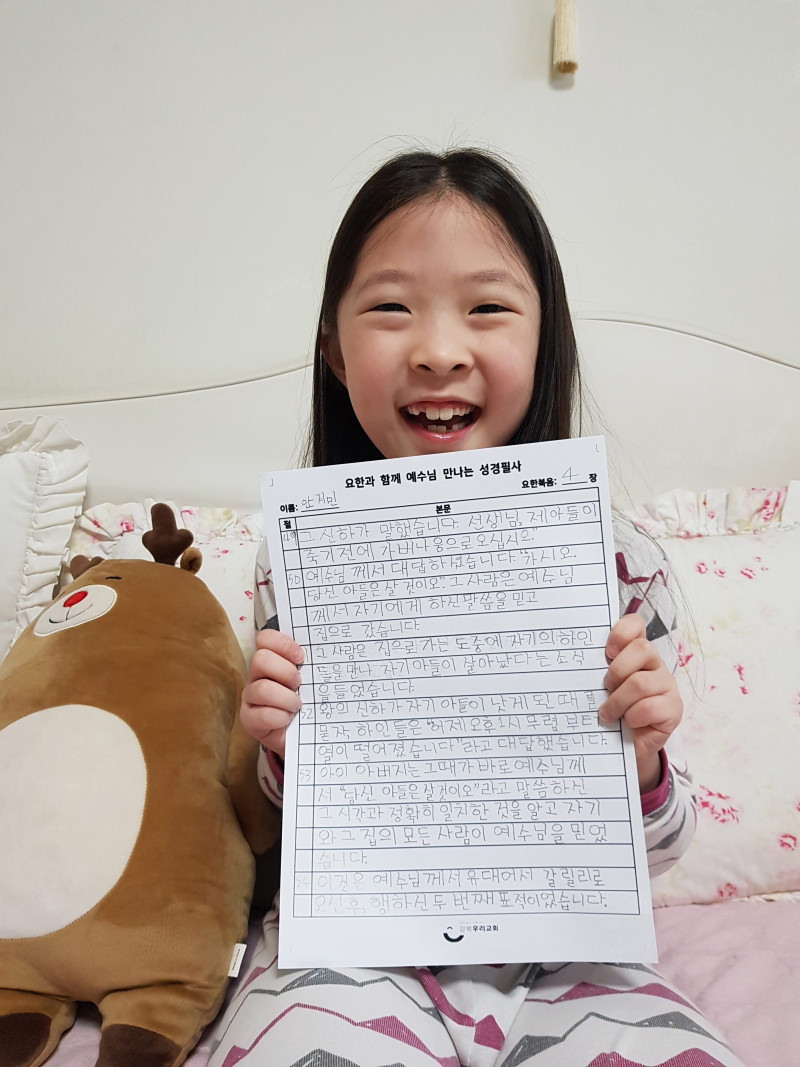 요한과 함께 예수님 만나는 성경필사
이름: 안지민 요한복음: 4 장
절 본문
49 그 신하가 말했습니다. 선생님, 제 아들이
죽기전에 가버나움으로 오십시오.
50 예수님 께서 대답하셨습니다. "가시오.
당신 아들은 살 것이오". 그 사람은 예수님
께서 자기에게 하신 말씀을 믿고
집으로 갔습니다.
그 사람은 집으로 가는 도중에 자기의 하인
들을 만나 자기 아들이 살아났다는 소식
을 들었습니다.
52 왕의 신하가 자기 아들이 낫게 된 때를
묻자, 하인들은 "어제 오후 1시 무렵 부터
열이 떨어졌습니다"라고 대답했습니다.
53 아이 아버지는 그때가 바로 예수님께
서 "당신 아들은 살것이오"라고 말씀하신
그 시각과 정확히 일치한 것을 알고 자기
와 그 집의 모든 사람이 예수님을 믿었
습니다.
54 이것은 예수님께서 유대에서 갈릴리로
오신후, 행하신 두 번째 표적이었습니다.
강북우리교회